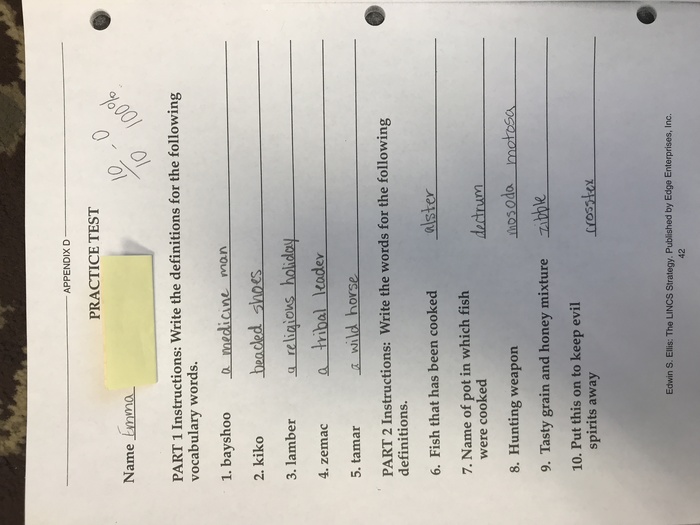 APPENDIX D
PRACTICE TEST
10/10 -0 100%
Name Emma
PART 1 Instructions: Write the definitions for the following
vocabulary words.
1. bayshoo a medicine man
2. kiko beaded shoes
3. lamber a religious holiday
4. zemac a tribal leader
5. tamar a wild horse
PART 2 Instructions: Write the words for the following
definitions.
6. Fish that has been cooked alster
7. Name of pot in which fish
were cooked dectrum
8. Hunting weapon mosoda motosa
9. Tasty grain and honey mixture zibble
10. Put this on to keep evil
spirits away crosstex
Edwin S. Ellis: The LINCS Strategy. Published by Edge Enterprises, Inc.
42